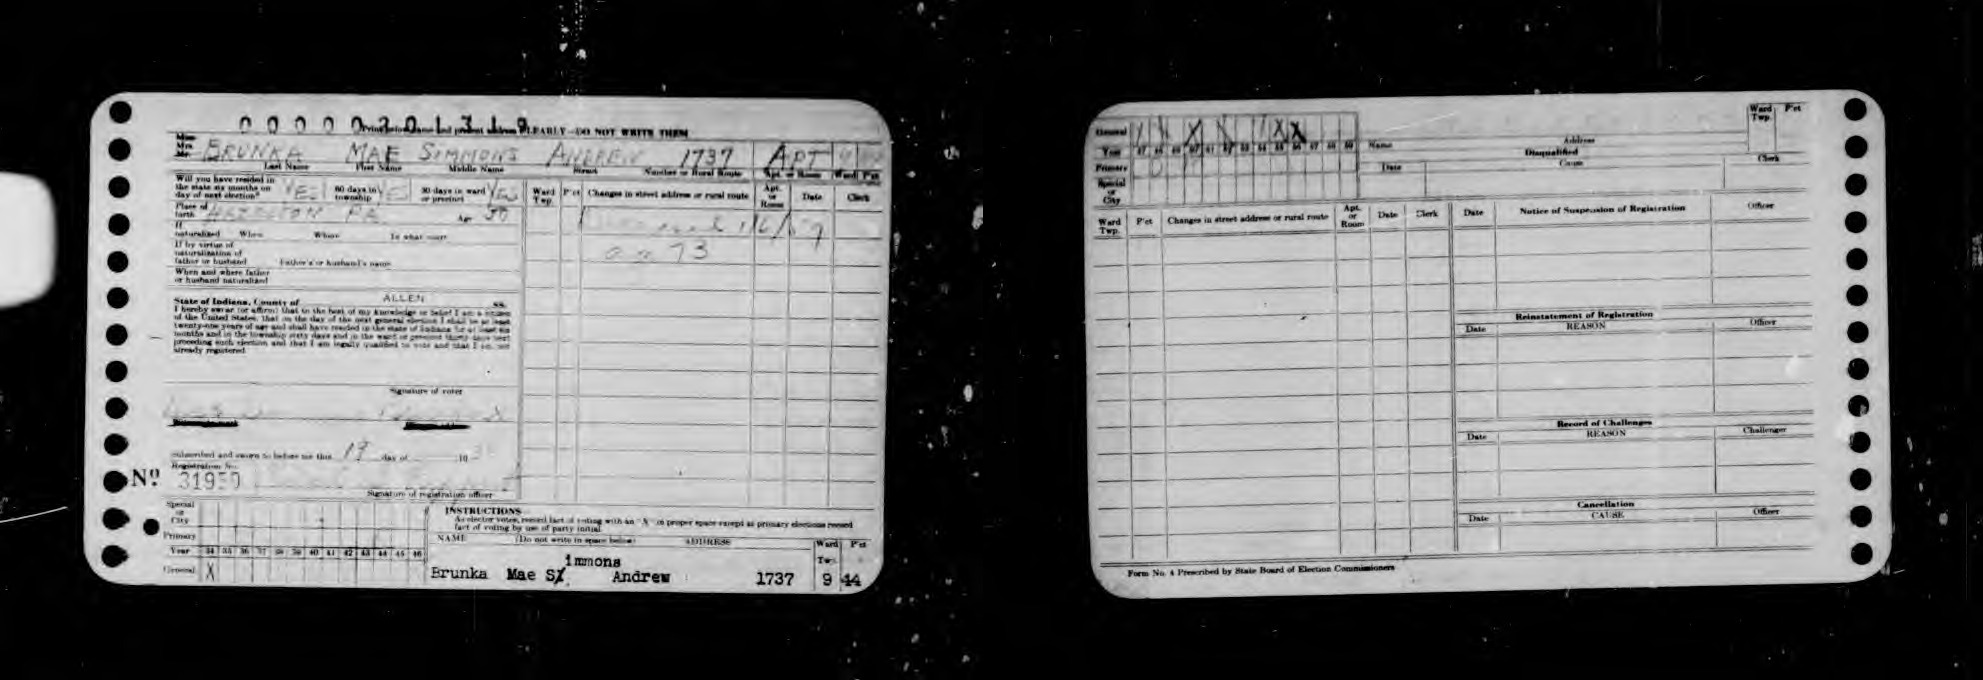 000000201319
LEARLY—DO NOT WRITE THEM
Miss
Mrs.
Mr. BRUNKA MAE SIMMONS ANDREW 1737 APT
Last Name First Name Middle Name Street Number or Rural Route Apt. or Room Ward P'ct
Will you have resided in
the state six months on
day of next election? YES 60 days in township YES 30 days in ward or precinct YES
Place of
birth HAZELTON PA Age 50
If
naturalized When Where In what court
If by virtue of
naturalization of
father or husband Father's or husband's name
When and where father
or husband naturalized
State of Indiana, County of ALLEN ss.
I hereby swear (or affirm) that to the best of my knowledge or belief I am a citizen
of the United States; that on the day of the next general election I shall be at least
twenty-one years of age and shall have resided in the state of Indiana for at least six
months and in the township sixty days and in the ward or precinct thirty days next
preceding such election and that I am legally qualified to vote and that I am not
already registered
Signature of voter
Subscribed and sworn to before me this 19 day of 19
Registration No.
Nº 31950
Signature of registration officer
Ward Twp. P'ct Changes in street address or rural route Apt. or Room Date Clerk
73
Special
or
City
Primary
Year 34 35 36 37 38 39 40 41 42 43 44 45 46
General X
INSTRUCTIONS
As elector votes, record fact of voting with an "X" in proper space except at primary elections record
fact of voting by use of party initial
NAME (Do not write in space below) ADDRESS Ward Twp. P'ct
immons
Brunka Mae S Andrew 1737 9 44
General X X X X
Year 47 48 49 50 51 52 53 54 55 56 57 58 59
Primary D
Special
or
City
Name Address Ward Twp. P'ct
Disqualified
Date Cause Clerk
Ward Twp. P'ct Changes in street address or rural route Apt. or Room Date Clerk
Date Notice of Suspension of Registration Officer
Reinstatement of Registration
Date REASON Officer
Record of Challenges
Date REASON Challenger
Cancellation
Date CAUSE Officer
Form No. 4 Prescribed by State Board of Election Commissioners